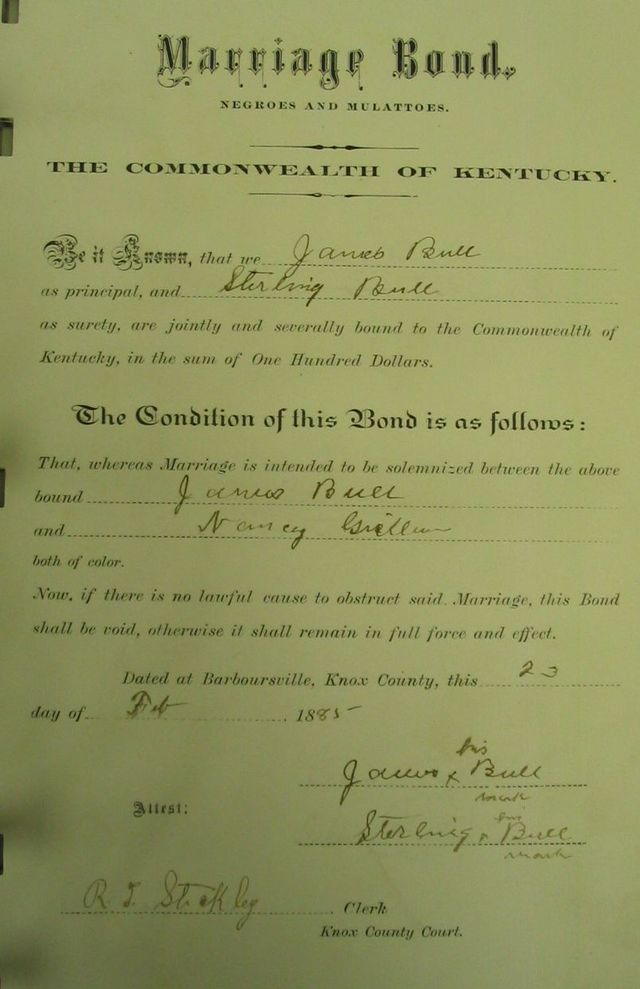 Marriage Bond.
NEGROES AND MULATTOES.
THE COMMONWEALTH OF KENTUCKY.
Be it Known, that we James Bull
as principal, and Sterling Bull
as surety, are jointly and severally bound to the Commonwealth of
Kentucky, in the sum of One Hundred Dollars.
The Condition of this Bond is as follows:
That, whereas Marriage is intended to be solemnized between the above
bound James Bull
and Nancy
both of color.
Now, if there is no lawful cause to obstruct said Marriage, this Bond
shall be void, otherwise it shall remain in full force and effect.
Dated at Barboursville, Knox County, this 23
day of Feb 1885
his
James x Bull
mark
Attest:
his
Sterling x Bull
mark
R. T. Stickley Clerk
Knox County Court.